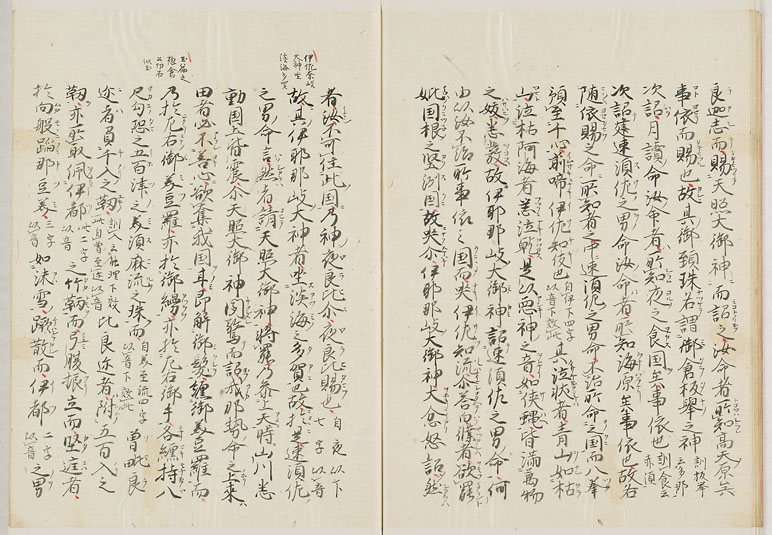 良迦志而賜天照大御神而詔之汝命者所知高天原矣
事依而賜也故其御頸珠名謂御倉板舉之神訓板挙云多那
次詔月讀命汝命者所知夜之食国矣事依也訓食云
次詔建速須佐之男命汝命者所知海原矣事依也故各
随依賜之命所知者之中速須佐之男命不治所命之国而八拳
須至于心前啼伊佐知伎也自伊下四字以音下效此其泣状者青山如枯
山泣枯河海者悉泣乾是以惡神之音如狭蝿皆滿萬物
之妖悉發故伊耶那岐大御神詔速須佐之男命何
由以汝不治所事依之国而哭伊佐知流尓答而僕者欲罷
妣国根之堅洲国故哭尓伊耶那岐大御神大忿怒詔然
者汝不可住此国乃神夜良比尓夜良比賜也自夜以下七字以音
大神坐淡海
故其伊耶那岐大神者坐淡海之多賀也故於是速須佐
之男命言然者請天照大御神将罷乃参上天時山川悉
動国土皆震尓天照大御神聞驚而詔我那勢命之上来
由者必不善心欲奪我国耳即解御髪纏御美豆羅而
乃於左右御美豆羅亦於御縵亦於左右御手各纏持八
尺勾之五百津之美須麻流之珠而自美至流四字以音下效此曽毗良
迩者負千入之靫訓入云能理下效此自曽至迩以音比良迩者附五百入之
靫亦所取佩伊都此二字以音之竹鞆而弓腹振立而堅庭者
於向股蹈那豆美三字以音如沫雪蹶散而伊都二字以音之男